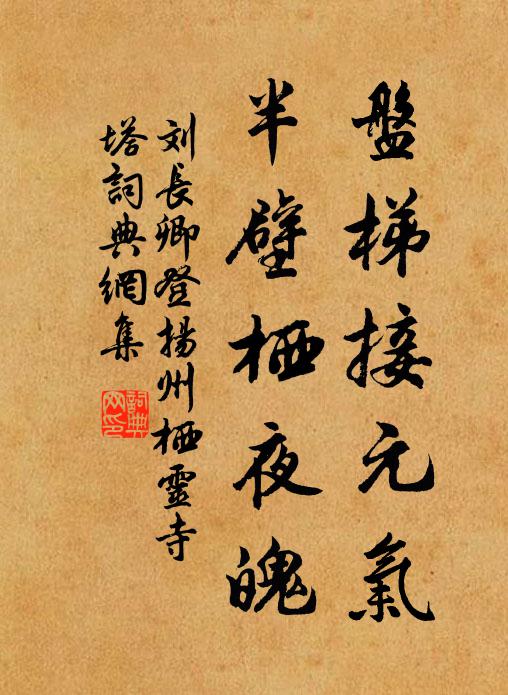 盤梯接元氣
半壁栖夜魄
刘長卿登揚州栖靈寺
塔詞典網集
詞典
网印